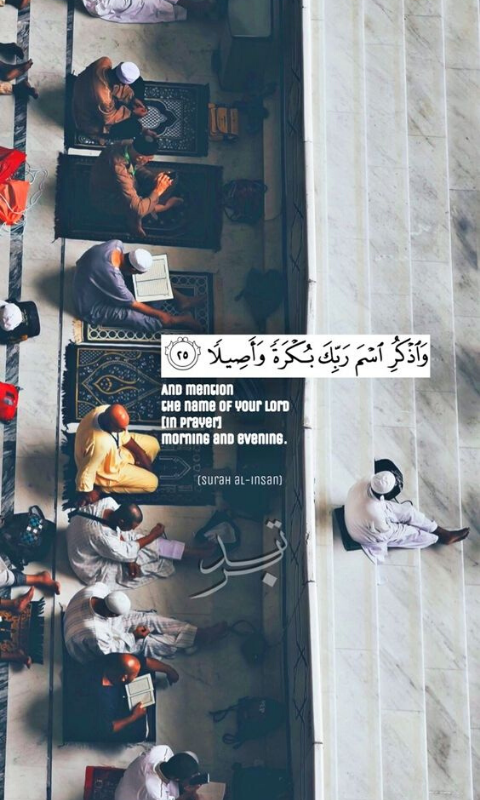 وَٱذْكُرِ ٱسْمَ رَبِّكَ بُكْرَةً وَأَصِيلًا ٢٥
And mention
the name of your Lord
[in prayer]
morning and evening.
(Surah Al-Insan)
تدبر